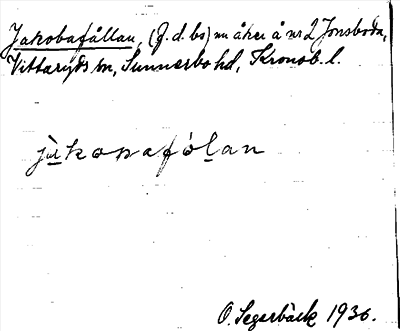 Jakobafållan, (f. d. bs) nu åker å nr 2 Jonsboda,
Vittaryds sn, Sunnerbo hd, Kronob. l.
jàkopafólan
O. Segerbäck 1936.